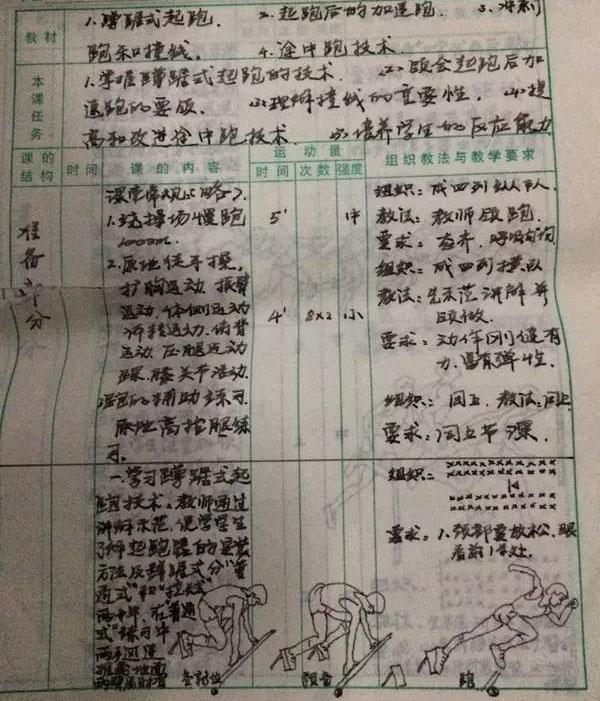 教材
1.蹲踞式起跑. 2.起跑后的加速跑. 3.冲刺
跑和撞线. 4.途中跑技术.
本课任务
1.掌握蹲踞式起跑的技术. (2)领会起跑后加
速跑的要领. (3)理解撞线的重要性. (4)提
高和改进途中跑技术. (5)培养学生的反应能力
课的结构 时间 课的内容 运动量 组织教法与教学要求
时间 次数 强度
准备部分
课堂常规(略).
1.绕操场慢跑
1000m.
5' 中
2.原地徒手操.
扩胸运动 振臂
运动.体侧运动
运动 压腿运动
踝.膝关节活动
4' 8x2 小
原地高抬腿练
习.
组织:成四列纵队.
教法:教师领跑.
组织:成四列横队
教法:先示范讲解并
领做.
要求:动作刚健有
力.富有弹性.
组织:同上.教法:同上
要求:同上节课.
一.学习蹲踞式起
跑技术:教师通过
讲解示范.使学生
了解起跑器的安装
方法及蹲踞式分"普
通式"和"拉长式"
两种.在普通
式"练习中
组织:
要求:1.颈部要放松.眼
看前1米处.
各就位 预备 跑